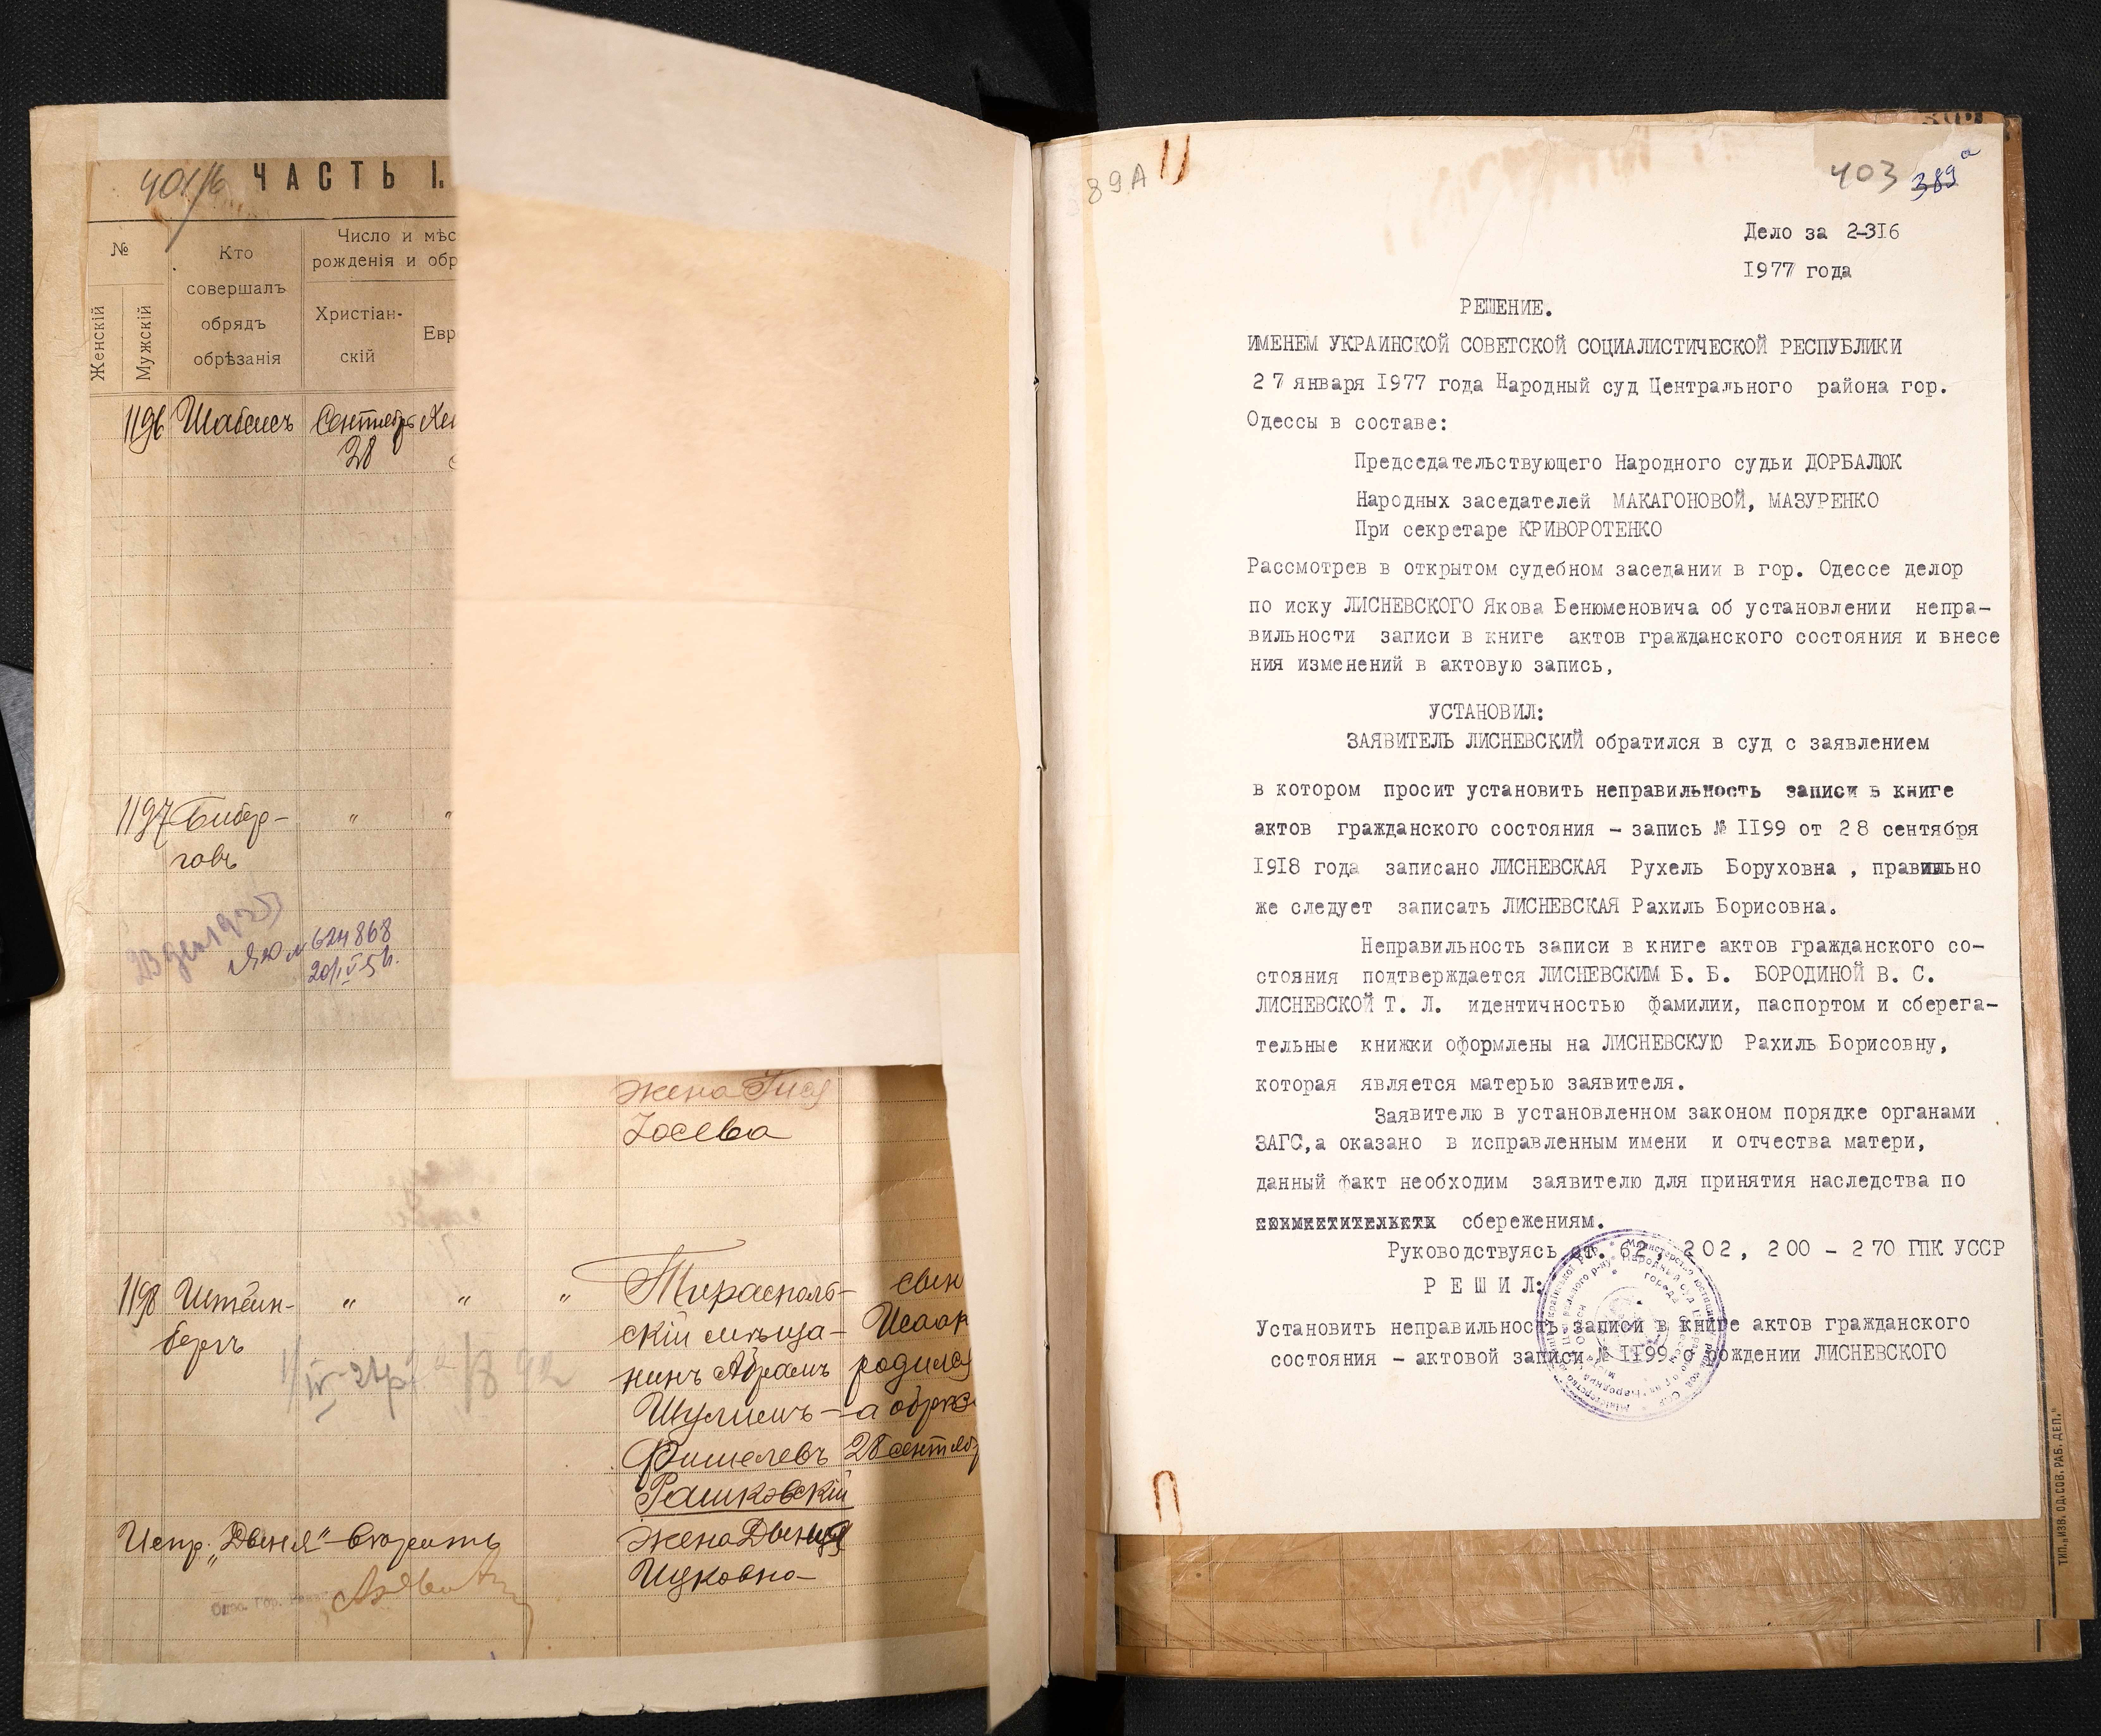 401/б ЧАСТЬ I.
№
Женскій
Мужскій
Кто
совершалъ
обрядъ
обрѣзанія
Число и мѣс
рожденія и обр
Христіан-
скій
Евр
1196 Шабсисъ Сентябрь
28
1197 Бибер- " "
говъ
№ 624868
жена
Іосева
1198 Штейн- " " " Тирасполь- сынъ
бергъ скій мѣща- Исаак
нинъ Абрамъ родился
Шулимъ- а обрѣз
Фишелевъ 28 сентяб
Рашковскій
Испр. „Двейя" - вѣрить жена Двейя
Ицковна
89А
403 389 а
Дело за 2-316
1977 года
РЕШЕНИЕ.
ИМЕНЕМ УКРАИНСКОЙ СОВЕТСКОЙ СОЦИАЛИСТИЧЕСКОЙ РЕСПУБЛИКИ
27 января 1977 года Народный суд Центрального района гор.
Одессы в составе:
Председательствующего Народного судьи ДОРБАЛЮК
Народных заседателей МАКАГОНОВОЙ, МАЗУРЕНКО
При секретаре КРИВОРОТЕНКО
Рассмотрев в открытом судебном заседании в гор. Одессе делор
по иску ЛИСНЕВСКОГО Якова Бенюменовича об установлении непра-
вильности записи в книге актов гражданского состояния и внесе
ния изменений в актовую запись,
УСТАНОВИЛ:
ЗАЯВИТЕЛЬ ЛИСНЕВСКИЙ обратился в суд с заявлением
в котором просит установить неправильность записи в книге
актов гражданского состояния - запись № II99 от 28 сентября
1918 года записано ЛИСНЕВСКАЯ Рухель Боруховна , правильно
же следует записать ЛИСНЕВСКАЯ Рахиль Борисовна.
Неправильность записи в книге актов гражданского со-
стояния подтверждается ЛИСНЕВСКИМ Б. Б. БОРОДИНОЙ В. С.
ЛИСНЕВСКОЙ Т. Л. идентичностью фамилии, паспортом и сберега-
тельные книжки оформлены на ЛИСНЕВСКУЮ Рахиль Борисовну,
которая является матерью заявителя.
Заявителю в установленном законом порядке органами
ЗАГС,а оказано в исправленным имени и отчества матери,
данный факт необходим заявителю для принятия наследства по
сбережениям.
Руководствуясь ст. 62, 202, 200 - 270 ГПК УССР
Р Е Ш И Л:
Установить неправильность записи в книге актов гражданского
состояния - актовой записи № II99 о рождении ЛИСНЕВСКОГО
ТИП. „ИЗВ. ОД. СОВ. РАБ. ДЕП."